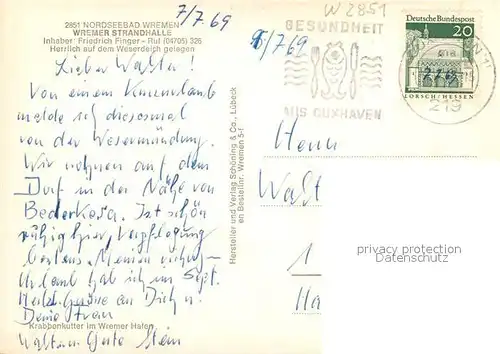 7/7.69
W 2851
2851 NORDSEEBAD WREMEN
WREMER STRANDHALLE
Inhaber: Friedrich Finger - Ruf (04705) 326
Herrlich auf dem Weserdeich gelegen
Lieber Walter!
Von einem Kurzurlaub
melde ich diesesmal
von der Wesermündung.
Wir wohnen auf dem
Dorf in der Nähe von
Bederkesa. Ist schön
ruhig hier, Verpflegung
bestens.
Urlaub hab ich im Sept.
Herzl. Grüße an Dich u.
Deine Frau
Krabbenkutter im Wremer Hafen
Hersteller und Verlag Schöning & Co., Lübeck
en Bestellnr. Wremen 5-f
/7.69
GESUNDHEIT
AUS CUXHAVEN
Deutsche Bundespost
20
LORSCH/HESSEN
219
Herrn
Walt
1
Ha
privacy protection
Datenschutz